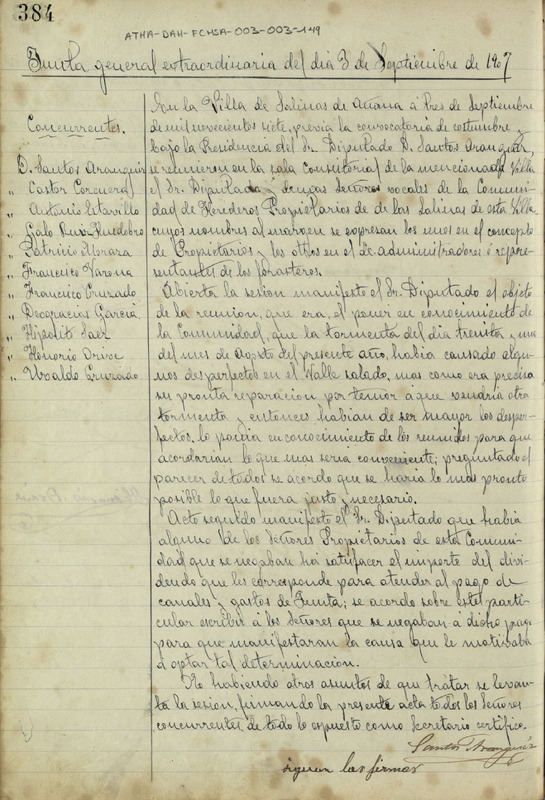 384
ATHA-DAH-FCHSA-003-003-149
Junta general extraordinaria del dia 3 de Septiembre de 1907
Concurrentes.
D. Santos Aranguiz
" Castor Corcuera
" Antonio Utarrillo
" Galo Ruiz
" Patricio Moraza
" Francisco Varona
" Francisco Cruzado
" Deogracias Garcia
" Hipolito Saez
" Honorio Orive
" Ubaldo Cruzado
En la Villa de Salinas de Añana á tres de Septiembre
de mil novecientos siete, previa la convocatoria de costumbre y
bajo la Presidencia del Sr. Diputado D. Santos Aranguiz,
se reunieron en la sala consistorial de la mencionada Villa
el Sr. Diputado y demas Señores vocales de la Comuni-
dad de Herederos Propietarios de de las Salinas de esta Villa
cuyos nombres al margen se expresan los unos en el concepto
de Propietarios y los otros en el de administradores ó repre-
sentantes de los forasteros.
Abierta la sesion manifesto el Sr. Diputado el objeto
de la reunion, que era, el poner en conocimiento de
la Comunidad, que la tormenta del dia treinta y uno
del mes de Agosto del presente año, habia causado algu-
nos desperfectos en el Valle salado, mas como era precisa
su pronta reparacion por temor á que vendria otra
tormenta y entonces habian de ser mayor los desper-
fectos, lo ponia en conocimiento de los reunidos para que
acordarian lo que mas seria conveniente; preguntado el
parecer de todos se acordo que se haria lo mas pronto
posible lo que fuera justo y necesario.
Acto seguido manifesto el Sr. Diputado que habia
alguno de los Señores Propietarios de esta Comuni-
dad que se negaban ha satisfacer el importe del divi-
dendo que les corresponde para atender al pago de
canales y gastos de Junta; se acordo sobre este parti-
cular escribir á los Señores que se negaban á dicho pago
para que manifestaran la causa que le motivaba
á optar tal determinacion.
No habiendo otros asuntos de que tratar se levan-
ta la sesion, firmando la presente acta todos los Señores
concurrentes de todo lo expuesto como Secretario certifico.
Santos Aranguiz
siguen las firmas